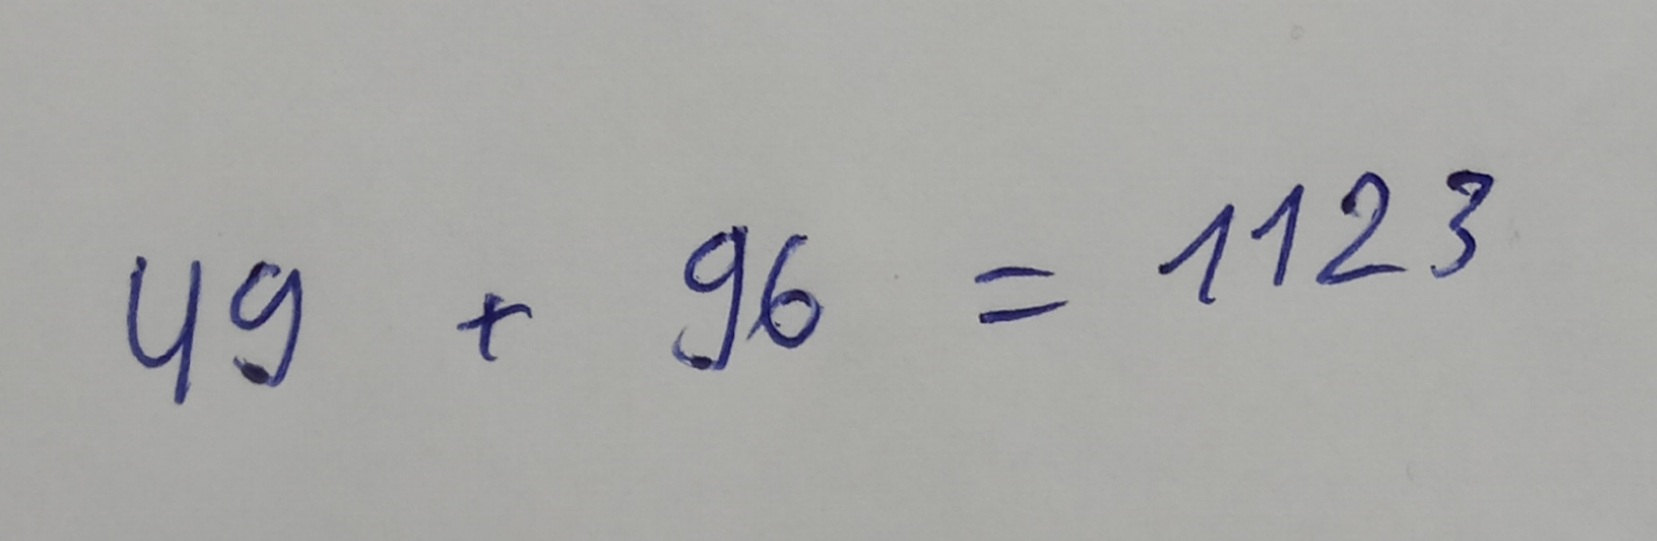 49 + 96 = 1123